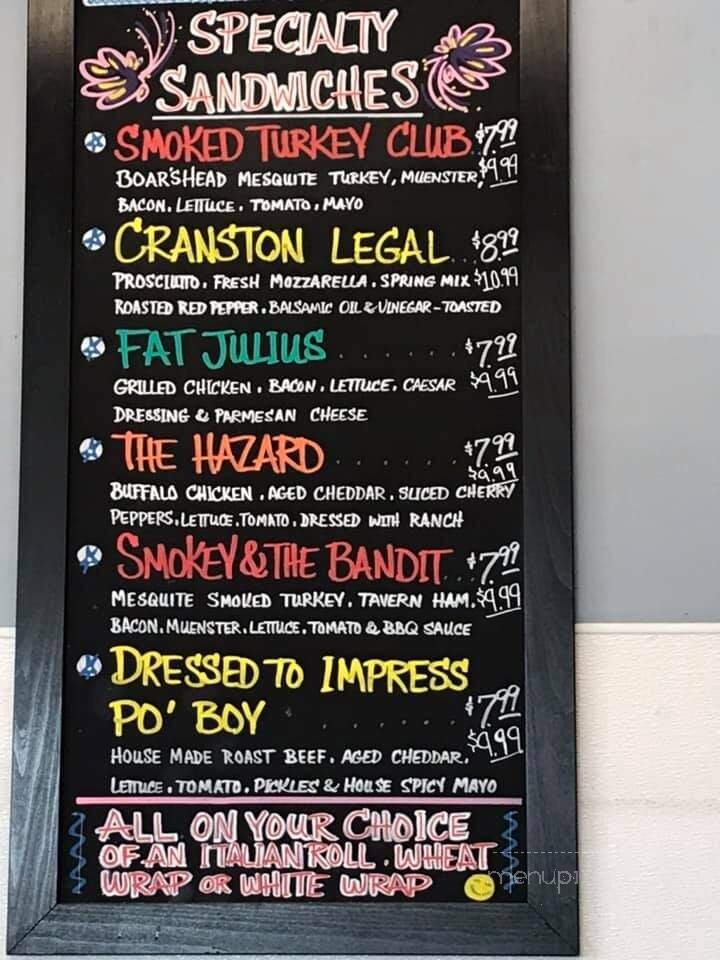 SPECIALTY
SANDWICHES
SMOKED TURKEY CLUB. $7.99
BOAR'S HEAD MESQUITE TURKEY, MUENSTER, $9.99
BACON. LETTUCE. TOMATO. MAYO
CRANSTON LEGAL.. $8.99
PROSCIUTTO. FRESH MOZZARELLA. SPRING MIX $10.99
ROASTED RED PEPPER. BALSAMIC OIL & VINEGAR - TOASTED
FAT JULIUS ...... $7.99
GRILLED CHICKEN. BACON. LETTUCE. CAESAR $9.99
DRESSING & PARMESAN CHEESE
THE HAZARD ...... $7.99
$9.99
BUFFALO CHICKEN. AGED CHEDDAR. SLICED CHERRY
PEPPERS. LETTUCE. TOMATO. DRESSED WITH RANCH
SMOKEY & THE BANDIT... $7.99
MESQUITE SMOKED TURKEY. TAVERN HAM. $9.99
BACON. MUENSTER. LETTUCE. TOMATO & BBQ SAUCE
DRESSED TO IMPRESS
PO' BOY ...... $7.99
HOUSE MADE ROAST BEEF. AGED CHEDDAR. $9.99
LETTUCE. TOMATO. PICKLES & HOUSE SPICY MAYO
ALL ON YOUR CHOICE
OF AN ITALIAN ROLL. WHEAT
WRAP OR WHITE WRAP
menupi